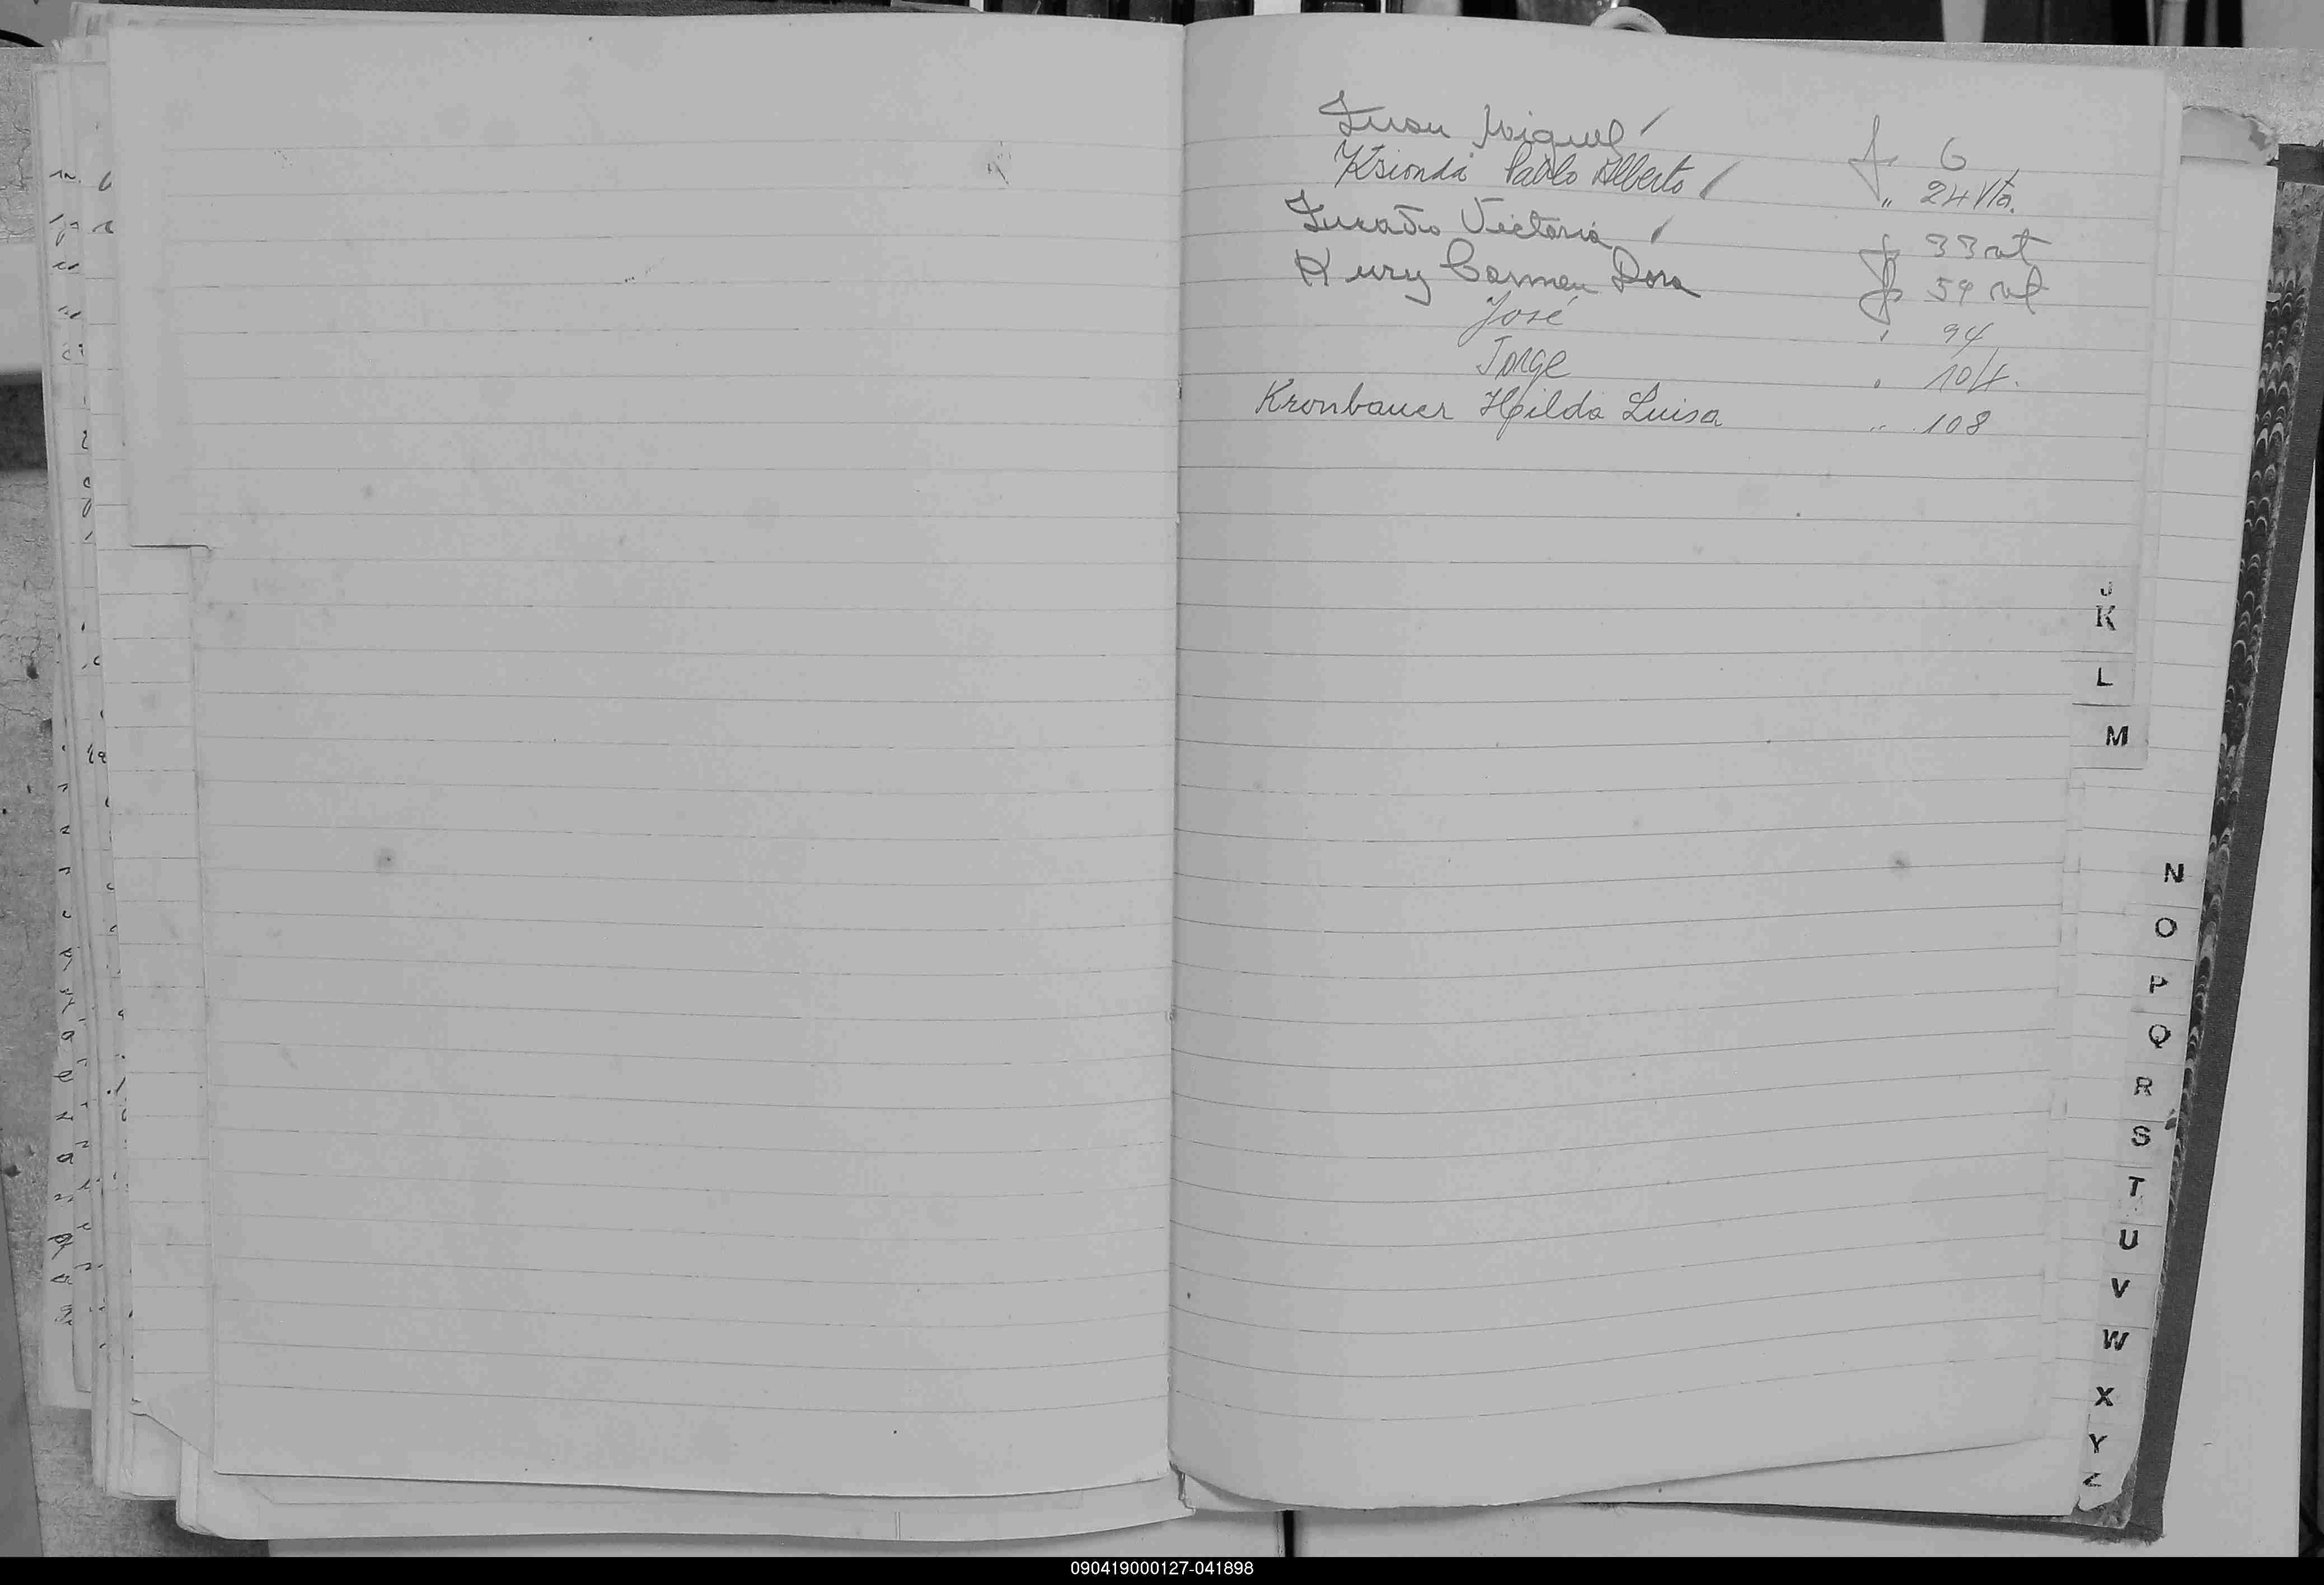 Juan Miguel f. 6
Ksionda Pablo Alberto " 24 Vta.
Jurado Victoria f 33 vt
Kury Carmen Dora f 59
José " 94
Jorge " 104.
Kronbauer Hilda Luisa " 108
J
K
L
M
N
O
P
Q
R
S
T
U
V
W
X
Y
Z
090419000127-041898